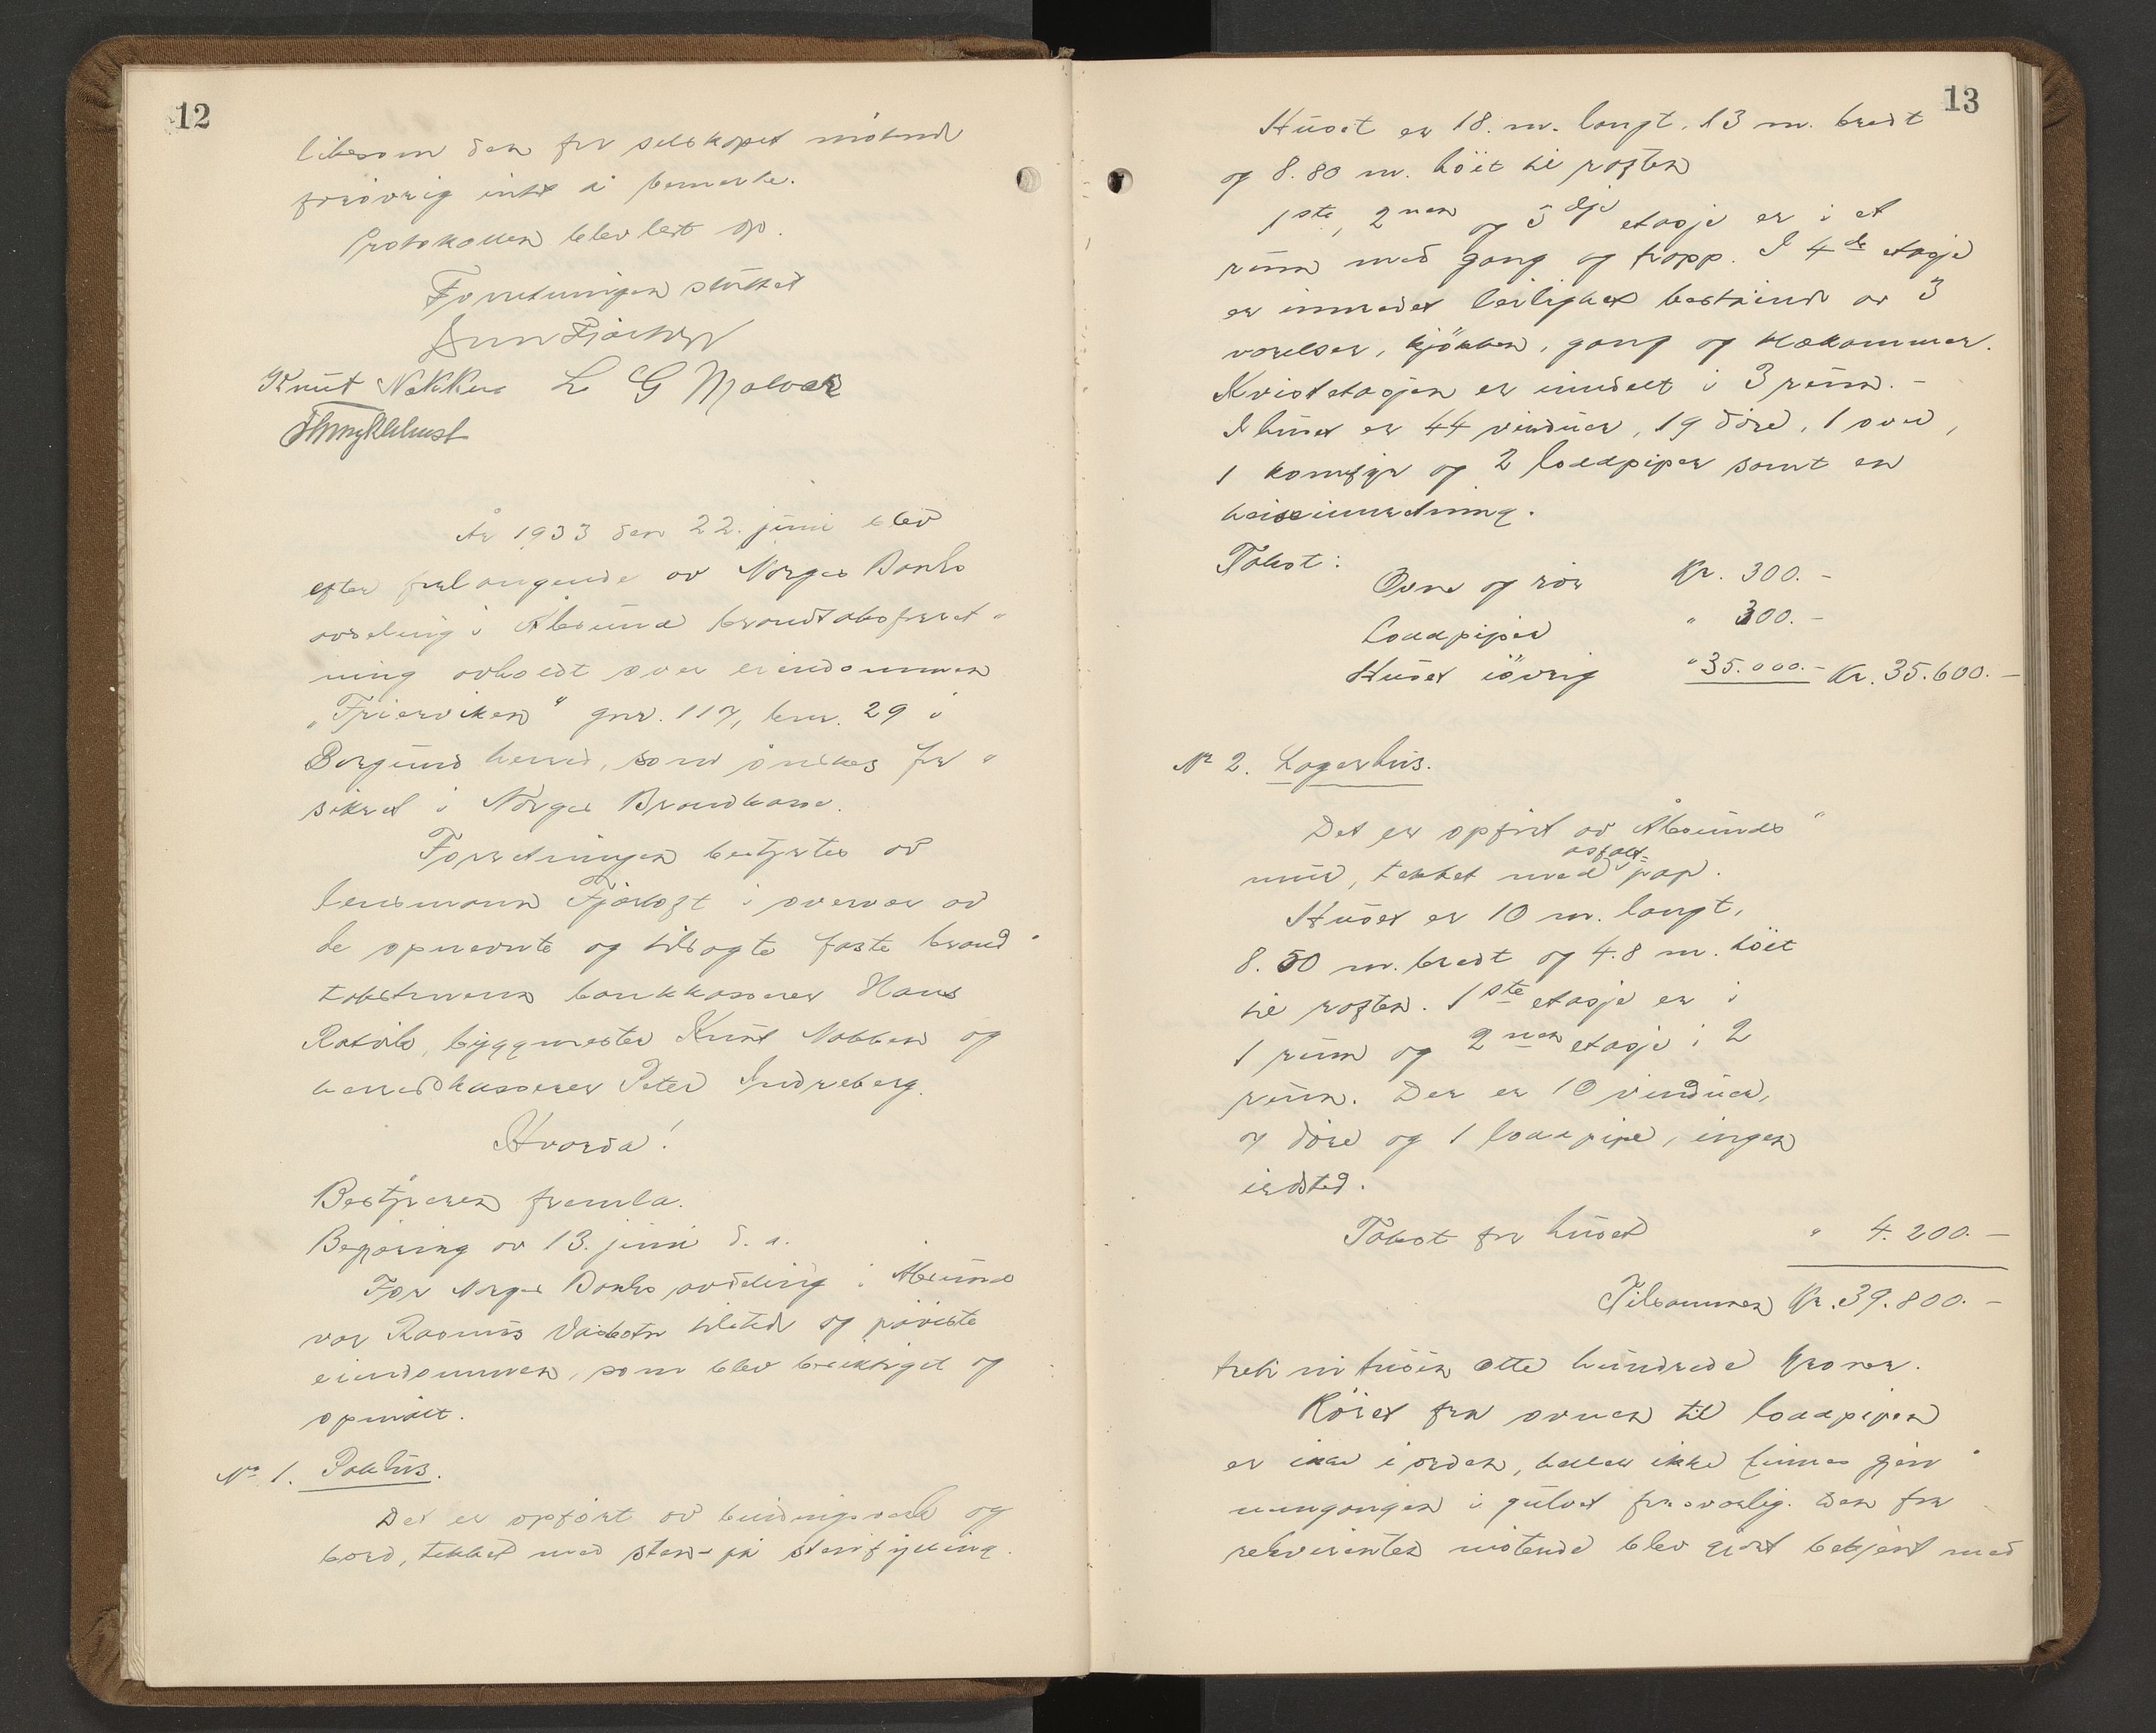 12
likesom den for selskapet møtende
forøvrig intet å bemerke.
Protokollen blev lest op.
Forretningen sluttet
Knut Nakken L G Molvær
År 1933 den 22. juni blev
efter forlangende av Norges Banks
avdeling i Ålesund brandtakstforret-
ning avholdt over eiendommen
„Frierviken" gnr. 117, bnr. 29 i
Borgund herred, som ønskes for-
sikret i Norges Brandkasse.
Forretningen bestyrtes av
lensmann Fjørtoft i overvær av
de opnevnte og tilsagte faste brand-
takstmenn bankkasserer Hans
Ratvik, byggmester Knut Nakken og
herredskasserer Peter Indreberg.
Hvorda!
Bestyreren fremla.
Begjæring av 13. juni d. a.
For Norges Banks avdeling i Ålesund
var Rasmus tilstede og påviste
eiendommen, som blev besiktiget og
opmålt.
No 1. Pakhus.
Det er opført av bindingsverk og
bord, tekket med sten på stenfylling.
13
Huset er 18. m. langt, 13 m. bredt
og 8.80 m. höit til røsten
1ste, 2nen og 3dje etasje er i et
rum med gang og trapp. I 4de etasje
er innredet leilighet bestående av 3
værelser, kjökken, gang og klækammer.
Kvistetasjen er inndelt i 3 rum. -
I huset er 44 vinduer, 19 döre, 1 ovn,
1 komfyr og 2 loddpiper samt en
heiseinnredning.
Takst:
Ovne og rör Kr. 300. -
Loddpiper " 300. -
Huset iövrig " 35.000. - Kr. 35.600. -
Nr 2. Lagerhus.
Det er opfört av Ålesunds-
mur, tekket med asfalt- pap.
Huset er 10 m. langt,
8.50 m. bredt og 4.8 m. höit
til røsten. 1ste etasje er i
1 rum og 2nen etasje i 2
rum. Der er 10 vinduer,
7 döre og 1 loddpipe, ingen
ildsted.
Takst for huset " 4.200. -
Tilsammen Kr. 39.800. -
tretti ni tusen åtte hundrede kroner.
Röret fra ovnen til loddpipen
er ikke i orden, heller ikke finnes gjen-
nemgangen i gulvet forsvarlig. Den for
rekvirenten møtende blev gjort bekjent med